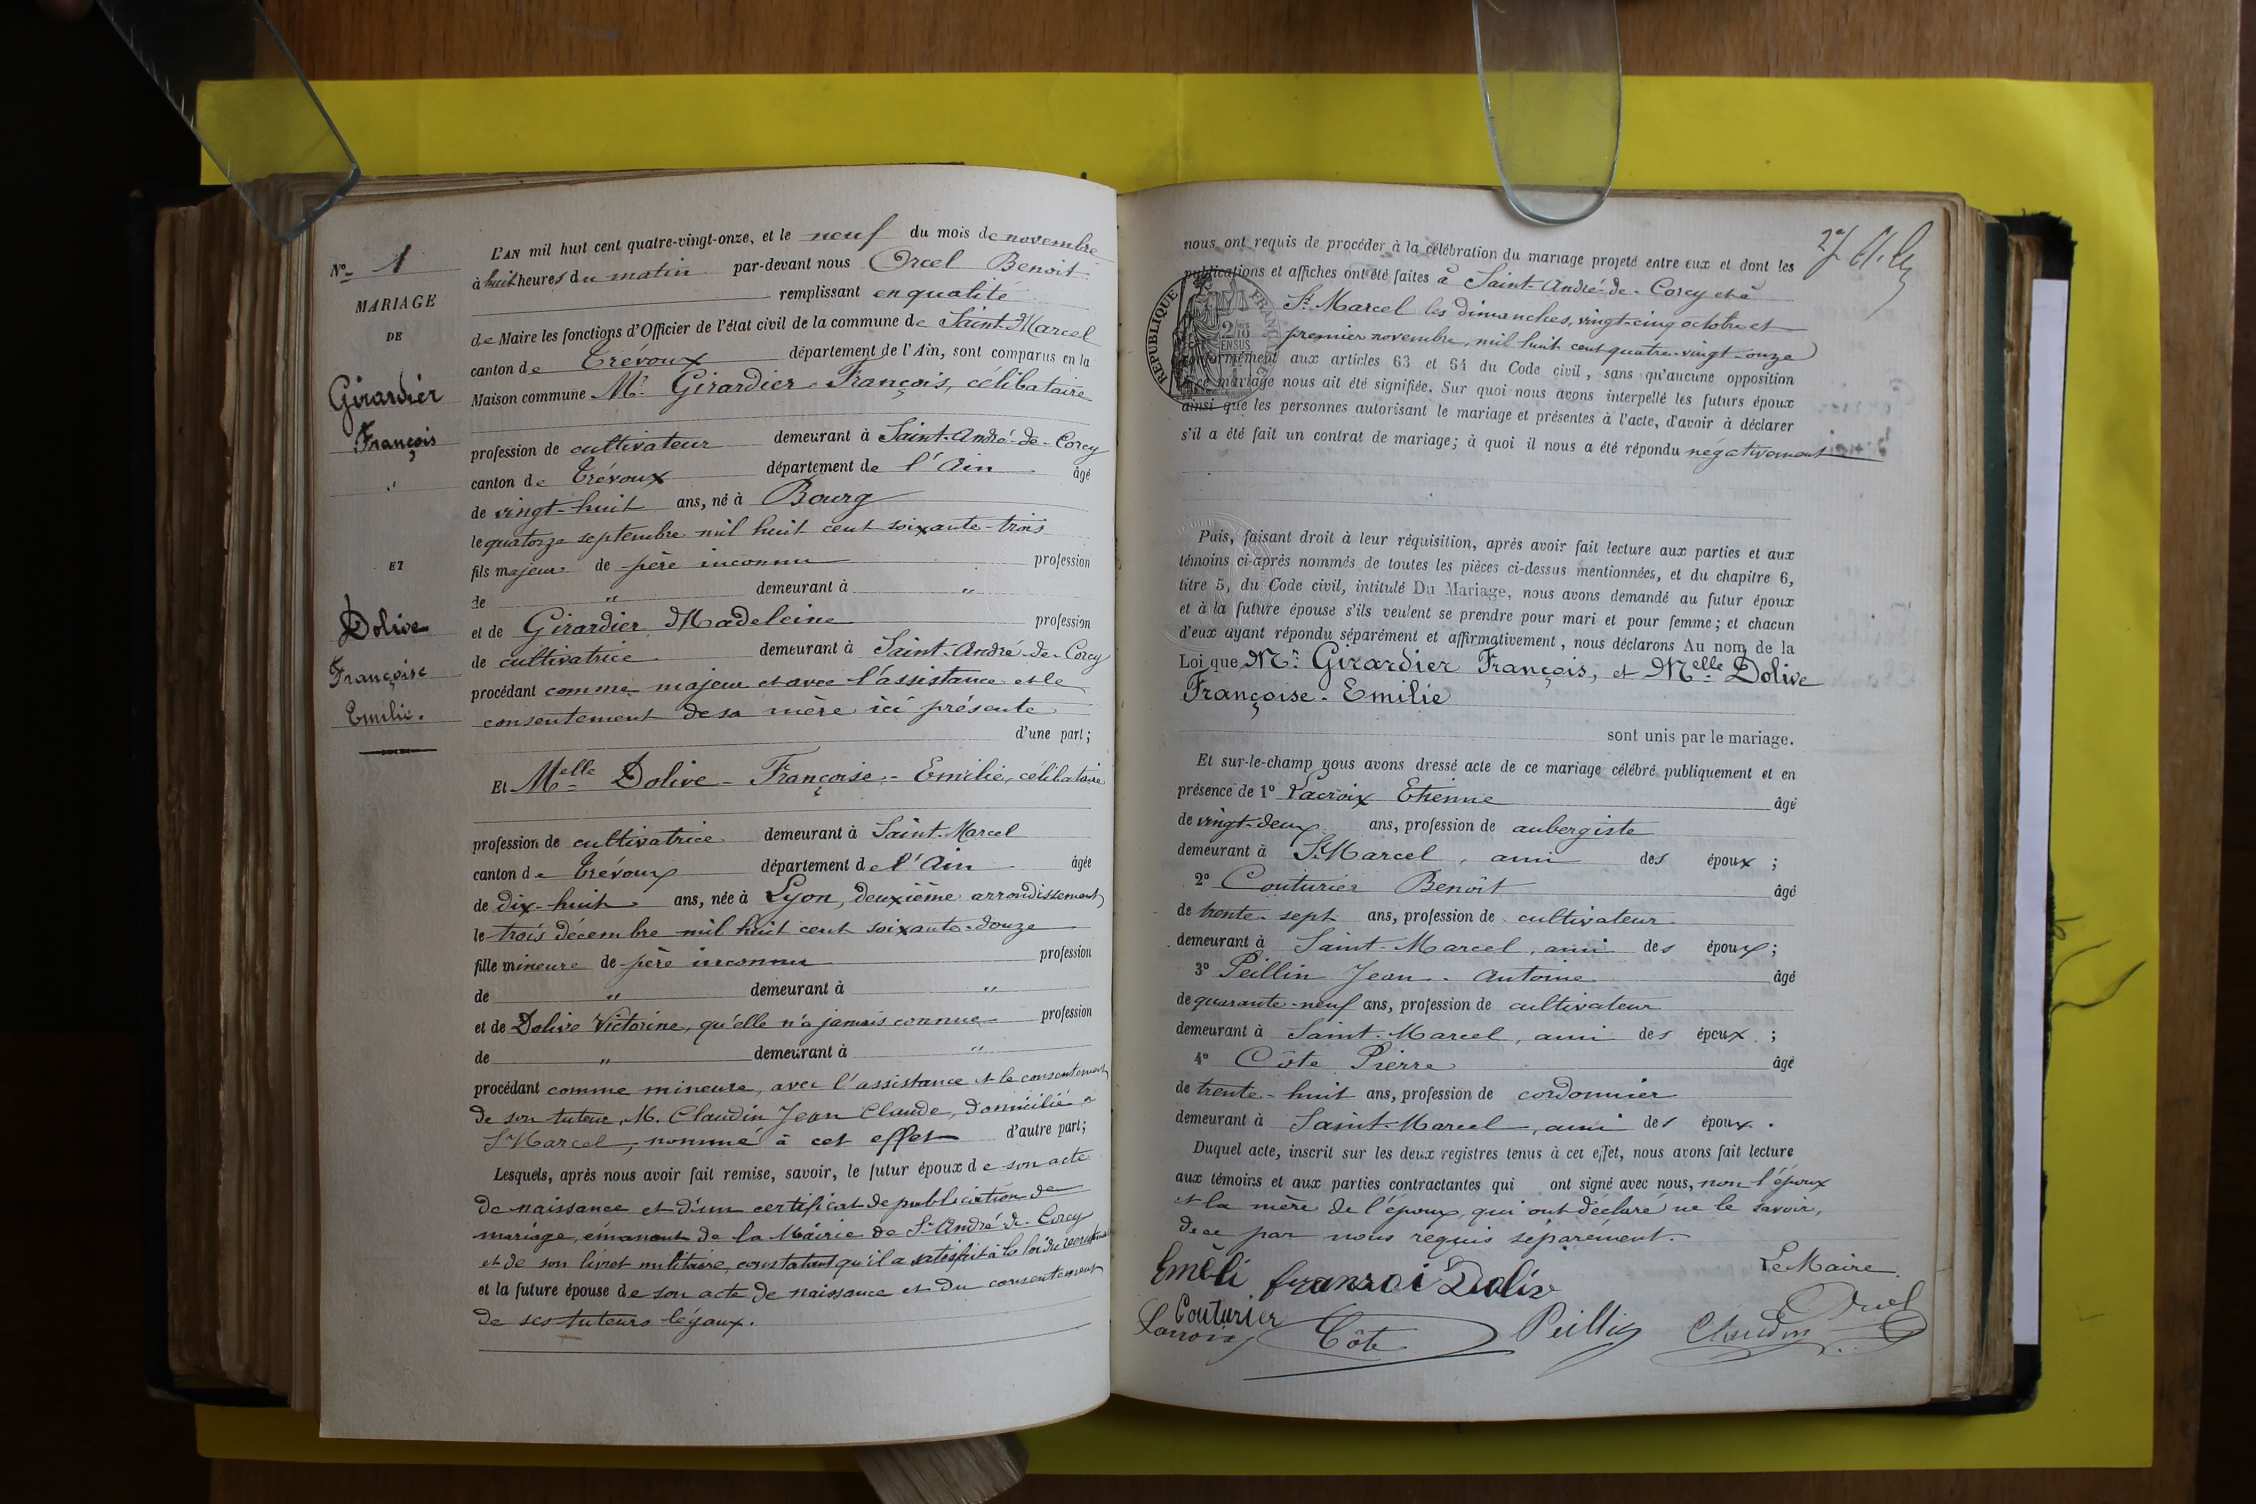 N° 1
MARIAGE
DE
Girardier
François
"
ET
Dolive
Françoise
Emilie.
L'AN mil huit cent quatre-vingt-onze, et le neuf du mois de novembre
à huit heures du matin par-devant nous Orcel Benoit
remplissant en qualité
de Maire les fonctions d'Officier de l'état civil de la commune de Saint-Marcel
canton de Trévoux département de l'Ain, sont comparus en la
Maison commune Mr. Girardier François, célibataire
profession de cultivateur demeurant à Saint-André-de-Corcy
canton de Trévoux département de l'Ain âgé
de vingt-huit ans, né à Bourg
le quatorze septembre mil huit cent soixante-trois
fils majeur de père inconnu profession
de " demeurant à "
et de Girardier Madeleine profession
de cultivatrice demeurant à Saint-André-de-Corcy
procédant comme majeur et avec l'assistance et le
consentement de sa mère ici présente
d'une part;
Et Melle Dolive - Françoise - Emilie, célibataire
profession de cultivatrice demeurant à Saint-Marcel
canton de Trévoux département de l'Ain âgée
de dix-huit ans, née à Lyon, deuxième arrondissement,
le trois décembre mil huit cent soixante-douze
fille mineure de père inconnu profession
de " demeurant à "
et de Dolive Victorine, qu'elle n'a jamais connue profession
de " demeurant à "
procédant comme mineure, avec l'assistance et le consentement
de son tuteur M. Claudin Jean Claude, domicilié à
St Marcel, nommé à cet effet d'autre part;
Lesquels, après nous avoir fait remise, savoir, le futur époux de son acte
de naissance et d'un certificat de publication de
mariage, émanant de la Mairie de St André-de-Corcy
et de son livret militaire, constatant qu'il a satisfait à la loi du recrutement
et la future épouse de son acte de naissance et du consentement
de ses tuteurs légaux.
nous ont requis de procéder à la célébration du mariage projeté entre eux et dont les
publications et affiches ont été faites à Saint-André-de-Corcy et à
St Marcel les dimanches, vingt-cinq octobre et
premier novembre, mil huit cent quatre-vingt-onze
conformément aux articles 63 et 64 du Code civil, sans qu'aucune opposition
à ce mariage nous ait été signifiée. Sur quoi nous avons interpellé les futurs époux
ainsi que les personnes autorisant le mariage et présentes à l'acte, d'avoir à déclarer
s'il a été fait un contrat de mariage; à quoi il nous a été répondu négativement
RÉPUBLIQUE FRANÇAISE
Puis, faisant droit à leur réquisition, après avoir fait lecture aux parties et aux
témoins ci-après nommés de toutes les pièces ci-dessus mentionnées, et du chapitre 6,
titre 5, du Code civil, intitulé Du Mariage, nous avons demandé au futur époux
et à la future épouse s'ils veulent se prendre pour mari et pour femme; et chacun
d'eux ayant répondu séparément et affirmativement, nous déclarons Au nom de la
Loi que Mr. Girardier François, et Melle Dolive
Françoise-Emilie
sont unis par le mariage.
Et sur-le-champ nous avons dressé acte de ce mariage célébré publiquement et en
présence de 1° Lacroix Etienne âgé
de vingt-deux ans, profession de aubergiste
demeurant à St Marcel, ami des époux;
2° Couturier Benoît âgé
de trente-sept ans, profession de cultivateur
demeurant à Saint-Marcel, ami des époux;
3° Peillin Jean-Antoine âgé
de quarante-neuf ans, profession de cultivateur
demeurant à Saint-Marcel, ami des époux;
4° Côte Pierre âgé
de trente-huit ans, profession de cordonnier
demeurant à Saint-Marcel, ami des époux.
Duquel acte, inscrit sur les deux registres tenus à cet effet, nous avons fait lecture
aux témoins et aux parties contractantes qui ont signé avec nous, non l'époux
et la mère de l'époux, qui ont déclaré ne le savoir,
de ce par nous requis séparément.
Le Maire.
Emèli fransoi Doliv
Orcel
Couturier
Lacroix Côte Peillin Claudin